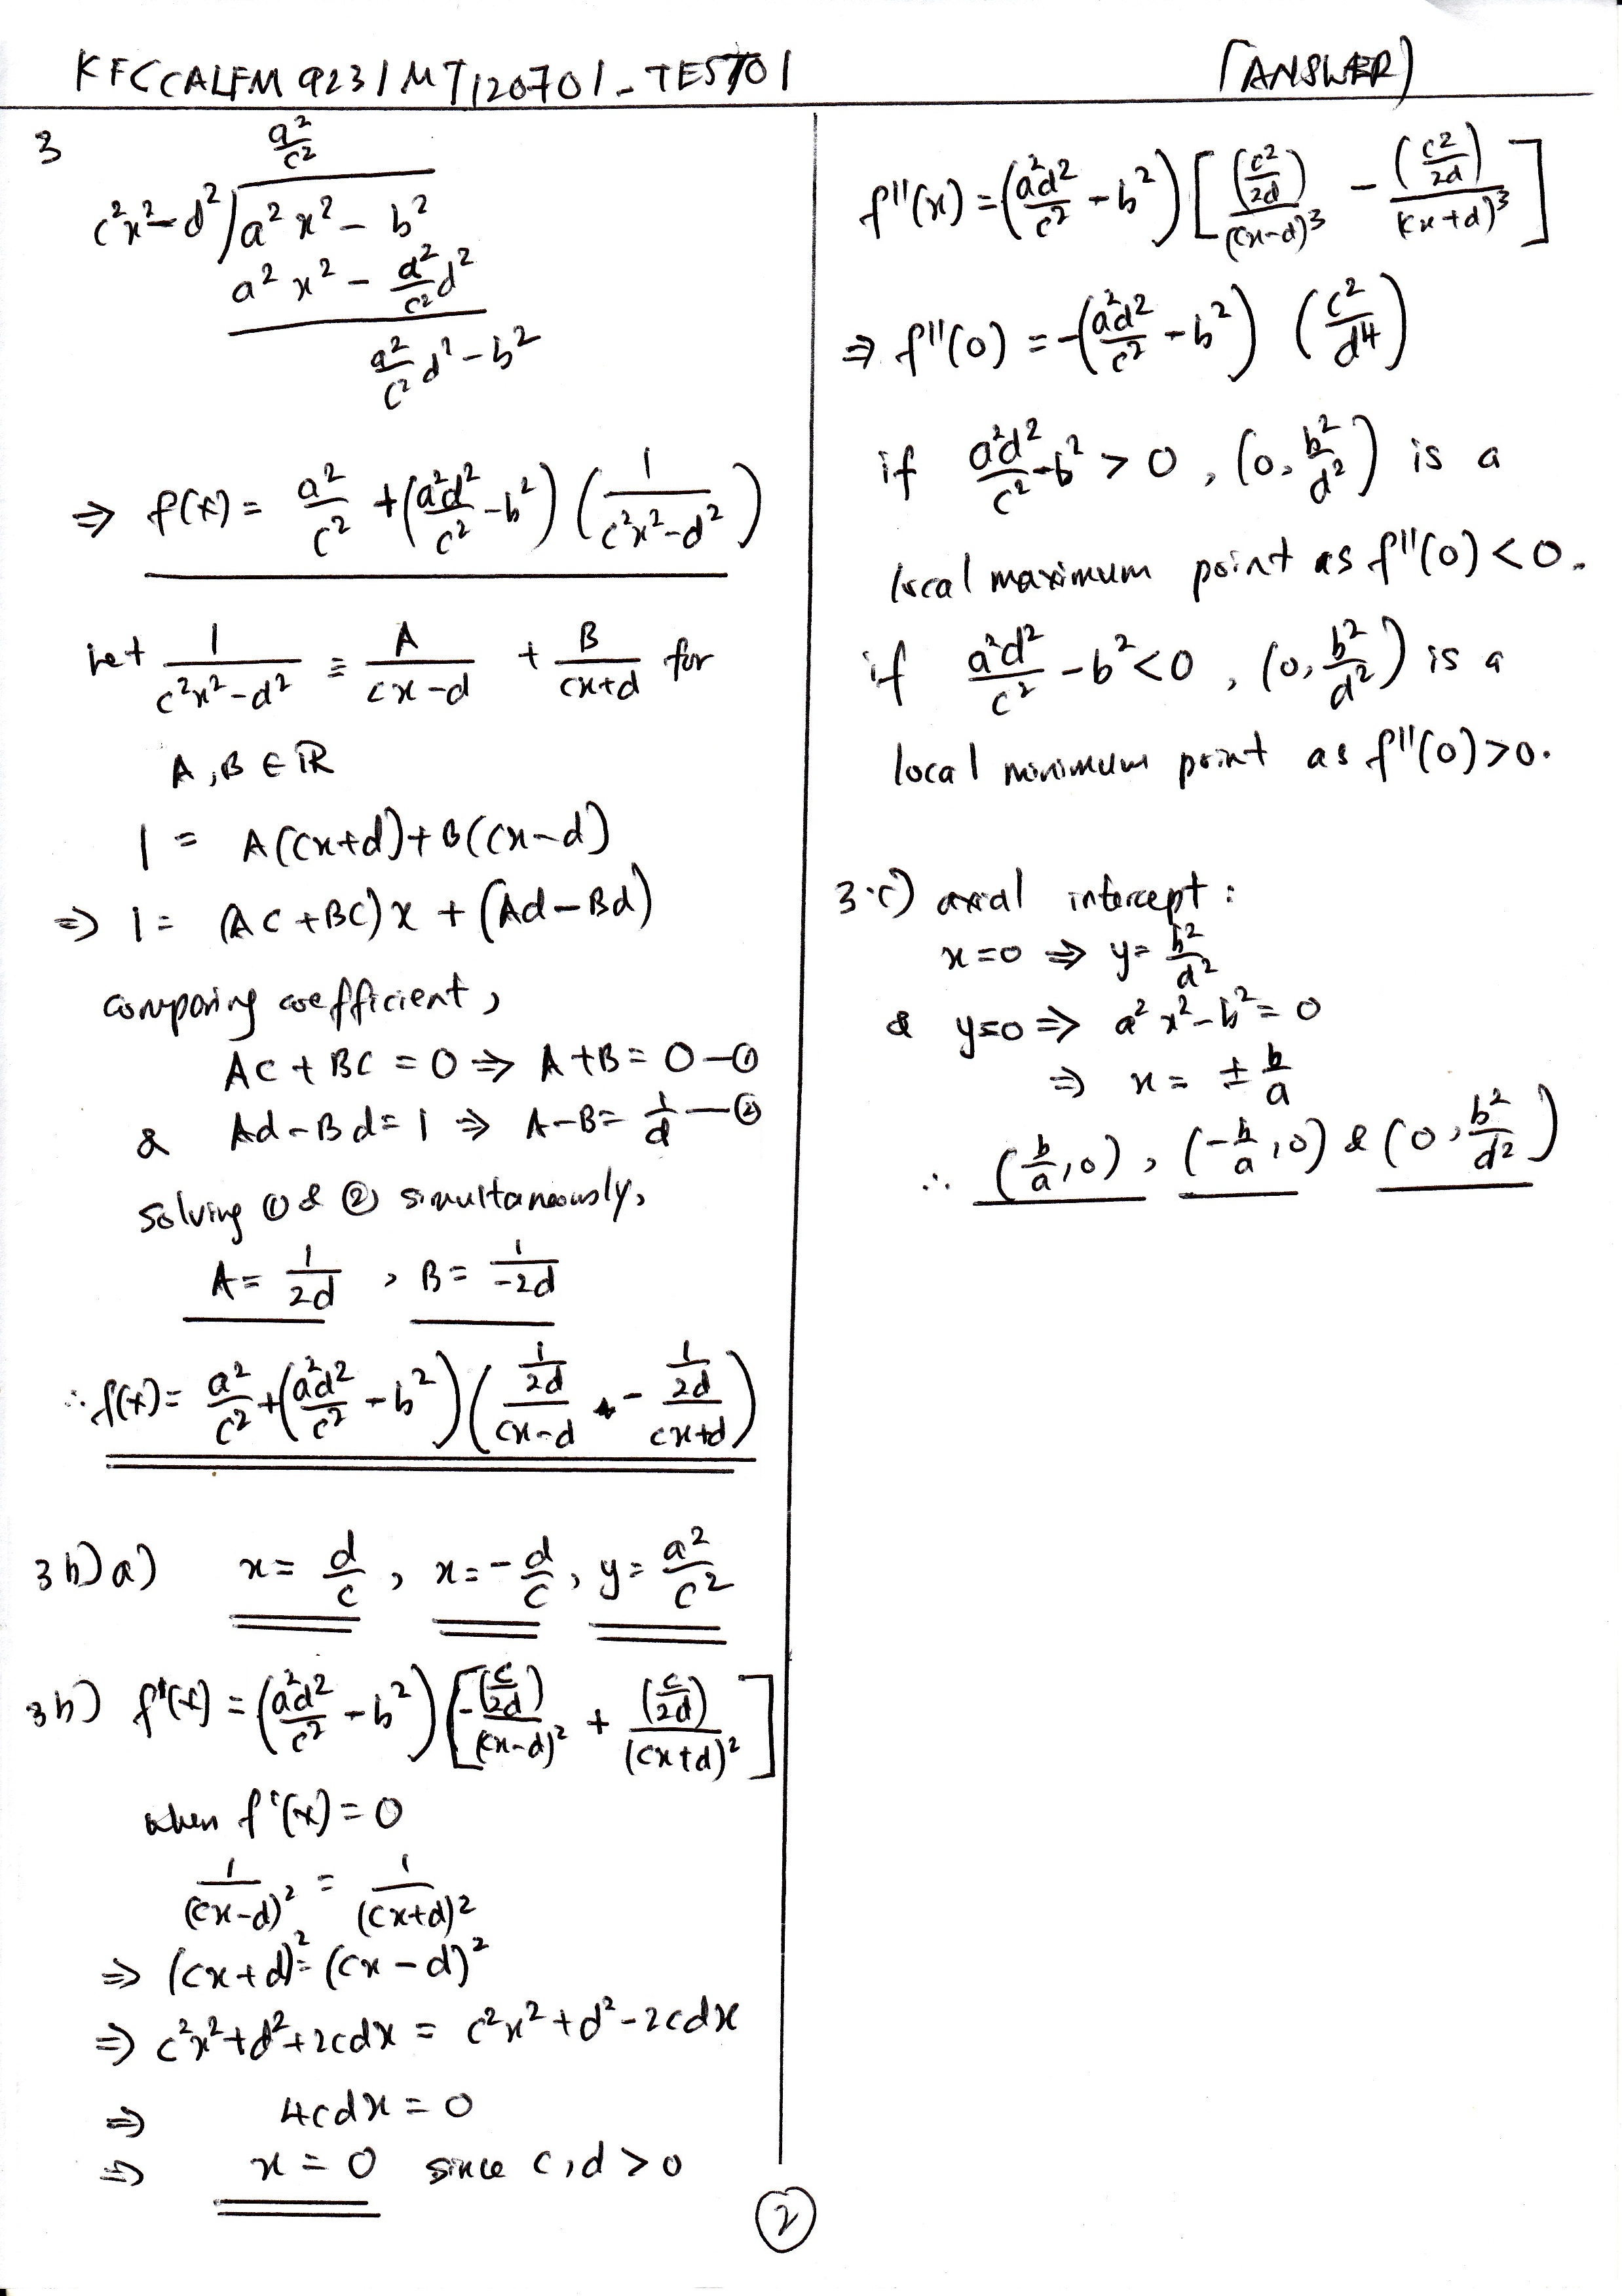 KFCCALFM 9231MT120701-TEST01 (ANSWER)
3
a²/c²
c²x²-d² ) a²x² - b²
a²x² - a²/c² d²
a²/c² d² - b²
⇒ f(x) = a²/c² + (a²d²/c² - b²) (1/(c²x²-d²))
Let 1/(c²x²-d²) ≡ A/(cx-d) + B/(cx+d) for
A, B ∈ ℝ
1 = A(cx+d)+B(cx-d)
⇒ 1 = (AC+BC)x + (Ad-Bd)
comparing coefficient,
AC + BC = 0 ⇒ A+B = 0 —①
& Ad-Bd = 1 ⇒ A-B = 1/d —②
solving ① & ② simultaneously,
A = 1/2d , B = 1/-2d
∴ f(x) = a²/c² + (a²d²/c² - b²) ((1/2d)/(cx-d) - (1/2d)/(cx+d))
3b)a) x = d/c , x = -d/c , y = a²/c²
3b) f'(x) = (a²d²/c² - b²) [-(c/2d)/(cx-d)² + (c/2d)/(cx+d)²]
when f'(x) = 0
1/(cx-d)² = 1/(cx+d)²
⇒ (cx+d)² = (cx-d)²
⇒ c²x²+d²+2cdx = c²x²+d²-2cdx
⇒ 4cdx = 0
⇒ x = 0 since c,d > 0
f''(x) = (a²d²/c² - b²) [(c²/2d)/(cx-d)³ - (c²/2d)/(cx+d)³]
⇒ f''(0) = -(a²d²/c² - b²) (c²/d4)
if a²d²/c² - b² > 0 , (0, b²/d²) is a
local maximum point as f''(0) < 0.
if a²d²/c² - b² < 0 , (0, b²/d²) is a
local minimum point as f''(0) > 0.
3.c) axial intercept :
x = 0 ⇒ y = b²/d²
& y = 0 ⇒ a²x² - b² = 0
⇒ x = ± b/a
∴ (b/a, 0) , (-b/a, 0) & (0, b²/d²)
2